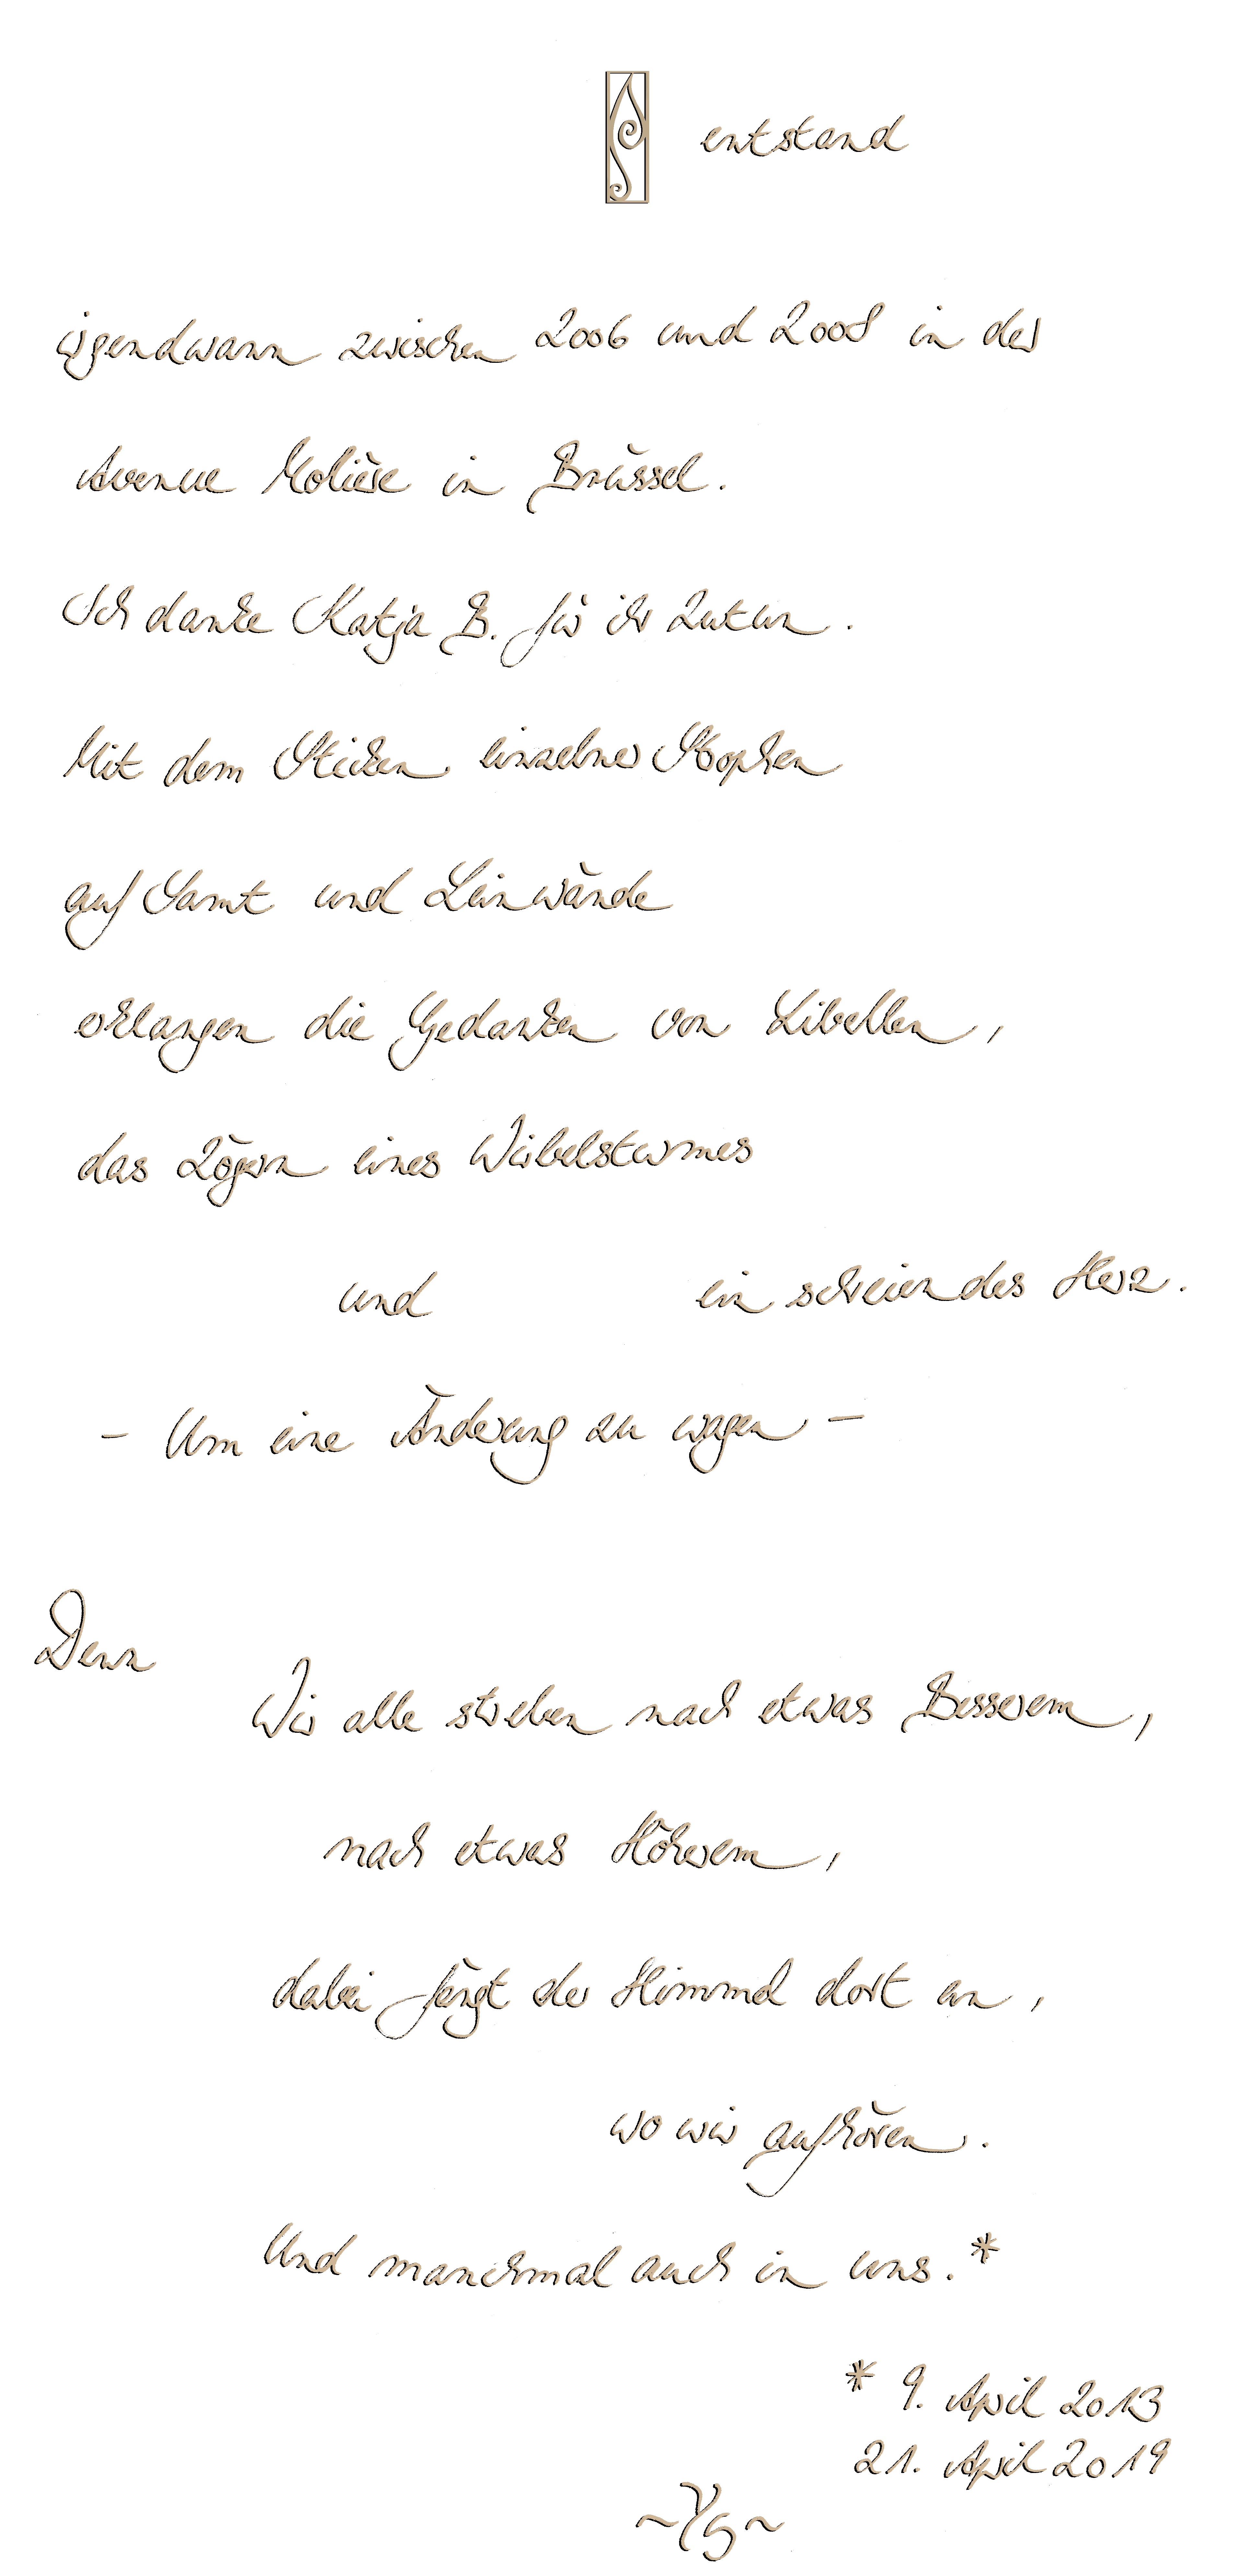 entstand
irgendwann zwischen 2006 und 2008 in der
Avenue Molière in Brüssel.
Ich danke Katja B. für ihr Zutun.
Mit dem Sticken einzelner Strophen
auf Samt und Leinwände
erklangen die Gedanken von Libellen,
das Zögern eines Wirbelsturmes
und ein schreiendes Herz.
- Um eine Änderung zu wagen -
Denn
Wir alle streben nach etwas Besserem,
nach etwas Höherem,
dabei fängt der Himmel dort an,
wo wir aufhören.
Und manchmal auch in uns.*
* 9. April 2013
21. April 2019